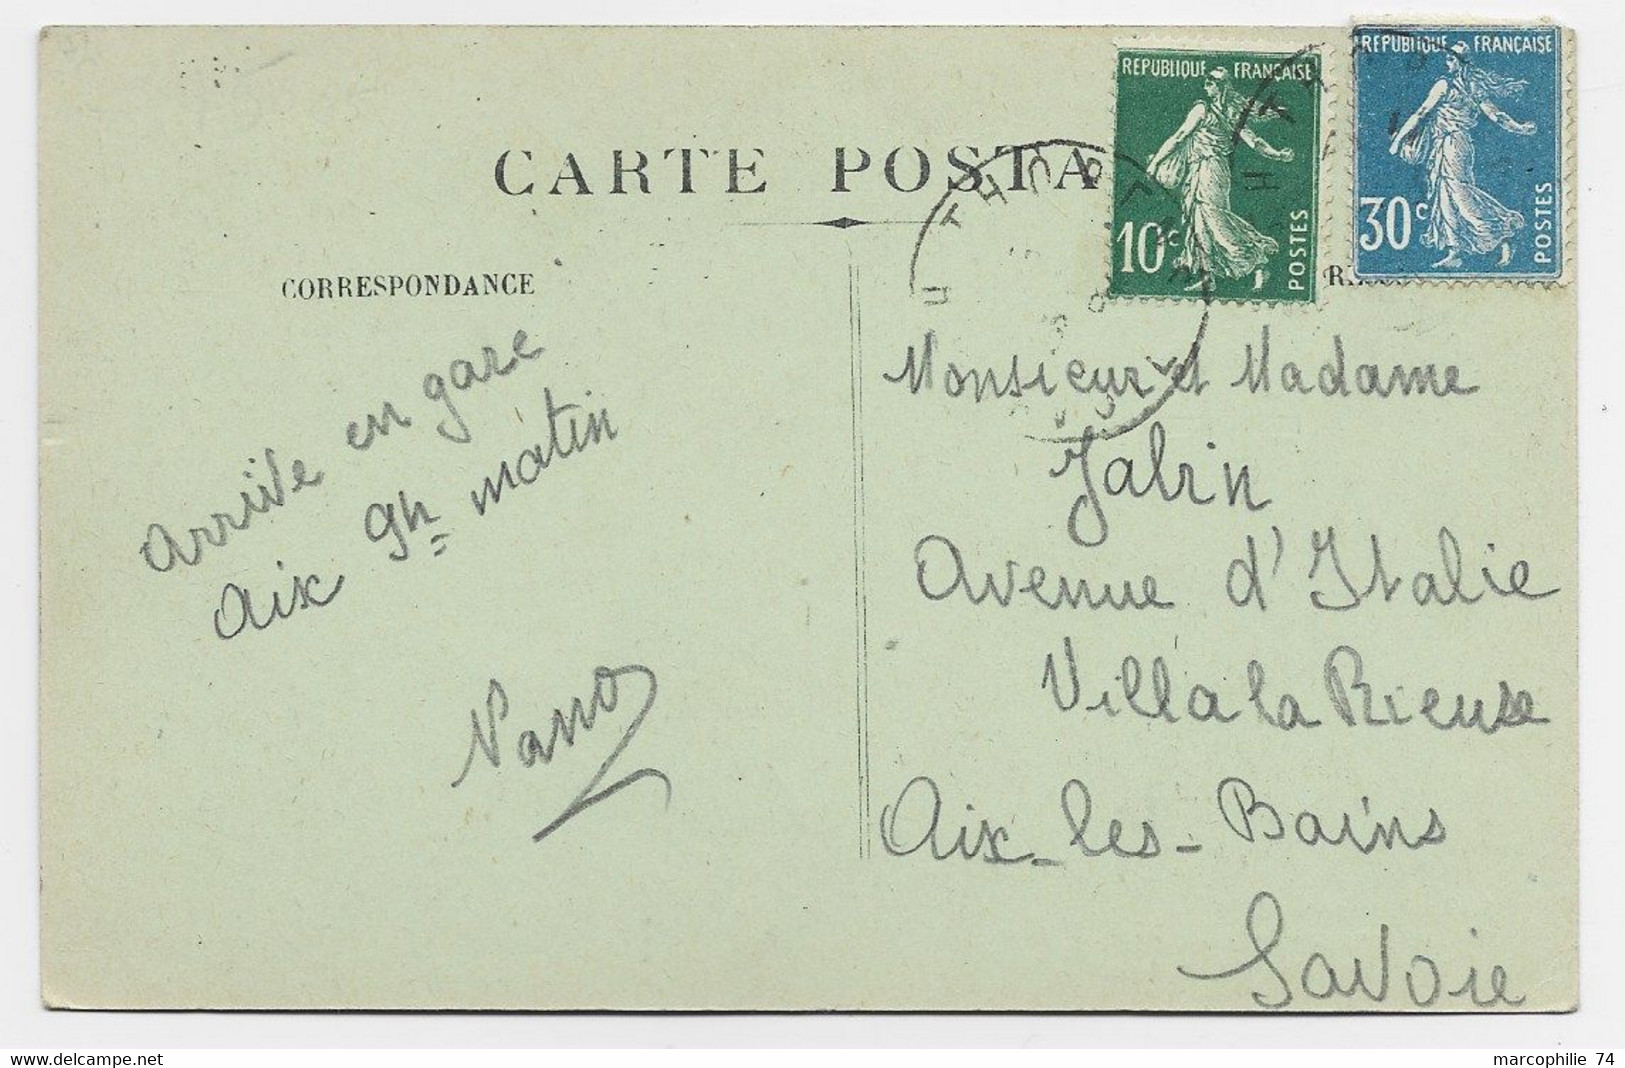 CARTE POSTA
CORRESPONDANCE
arrive en gare
aix 9h matin
Nano
REPUBLIQUE FRANÇAISE
10c
POSTES
REPUBLIQUE FRANÇAISE
30c
POSTES
Monsieur et Madame
Jalrin
Avenue d'Italie
Villa la Rieuse
Aix-les-Bains
Savoie
marcophilie 74